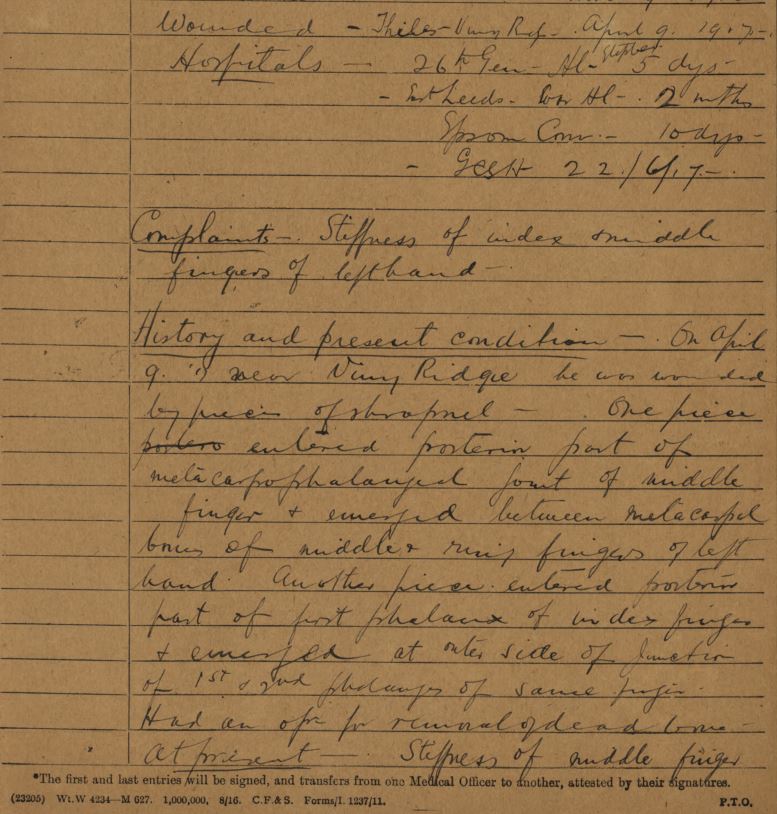 Wounded - Thelus - Vimy Rdg - April 9. 1917-
Hospitals - 26th Gen - Hl - Etaples 5 dys -
- Leeds - War Hl - 2 mths
Epsom Conv. - 10 dys -
- 22/6/17 -
Complaints - Stiffness of index & middle
fingers of left hand -
History and present condition - . On April
9. near Vimy Ridge he was wounded
by pieces of shrapnel - . One piece
entered posterior part of
metacarpophalangeal joint of middle
finger & emerged between metacarpal
bones of middle & ring fingers of left
hand. Another piece entered posterior
part of first phalanx of index finger
& emerged at outer side of junction
of 1st & 2nd phalanges of same finger.
Had an opn for removal of dead bone -
At present - Stiffness of middle finger
*The first and last entries will be signed, and transfers from one Medical Officer to another, attested by their signatures.
(23205) Wt.W 4234—M 627. 1,000,000, 8/16. C.F.&S. Forms/I. 1237/11. P.T.O.